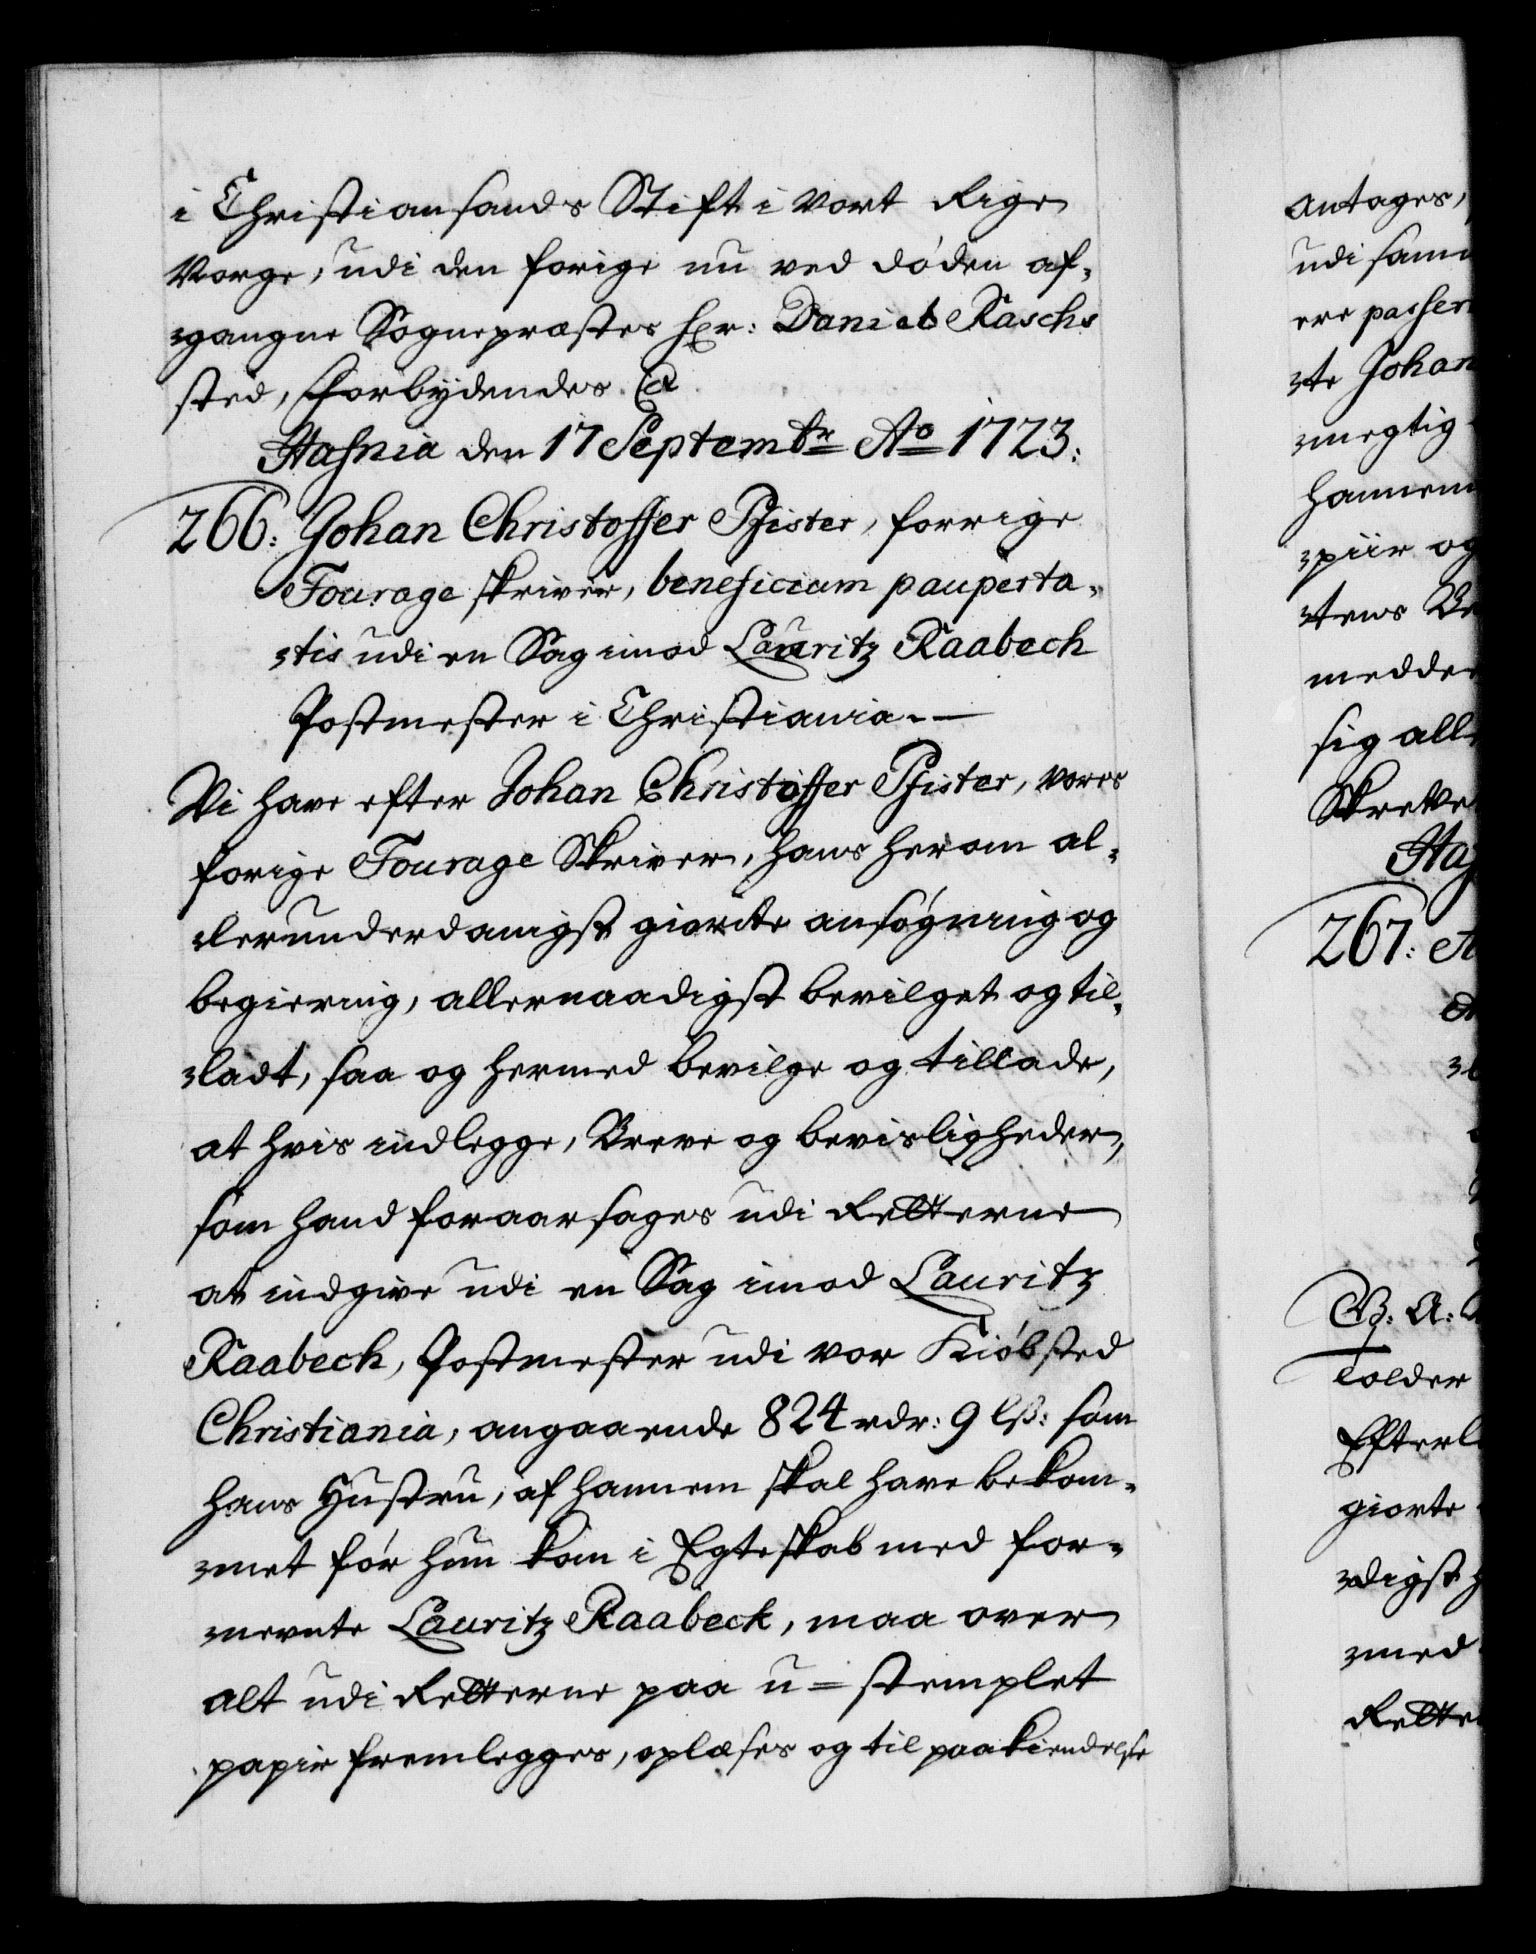 i Christiansands Stift i vort Rige
Norge, udi den forige nu ved døden af-
gangne Sogneprestes hr: Daniel Raschs
sted, Forbydendes &
Hafnia den 17 Septembr Ao 1723:
266: Johan Christoffer Pfister, forrige
Fourage skriver, beneficium pauperta-
tis udi en Sag imod Lauritz Raabech
Postmester i Christiania.
Vi have efter Johan Christoffer Pfister, vores
forige Fourage Skriver, hans herom al-
lerunderdanigst giorte ansøgning og
begiering, allernaadigst bevilget og til-
ladt, saa og hermed bevilge og tillade,
at hvis indlegge, Breve og bevisligheder,
som hand foraarsages udi Retterne
at indgive udi en Sag imod Lauritz
Raabech, Postmester udi vor Kiøbsted
Christiania, angaaende 824 rdr: 9 lß: som
hans Hustru, af hannem skal have bekom-
met før hun kom i Egteskab med for-
nevnte Lauritz Raabeck, maa over
alt udi Retterne paa u-stemplet
papir fremlegges, oplæses og til paakiendelse
antages,
udi sam
ere passer
te Johan
megtig
hannem
piir og
tens Be
meddee
sig alle
Skreve
Haf
267: A
B: A:
tolder
Efterl
giorte
digst h
med
Rette